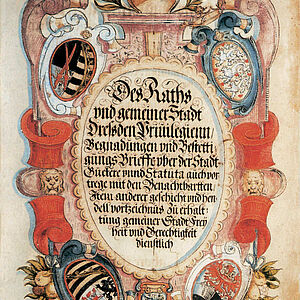 Des Raths
vnd gemeiner Stadt
Dresden Priuilegienn
Begnadungen vnd Bestetti
gungs Brieffe vber der Stadt
Güettere vnnd Statuta auch vor
trege mit den Benachtbartten
Item anderer geschicht vnd hen
dell vortzeichnüs Zu erhalt
tung gemeiner Stadt Frey
heit vnd Gerechtigkeit
dienstlich